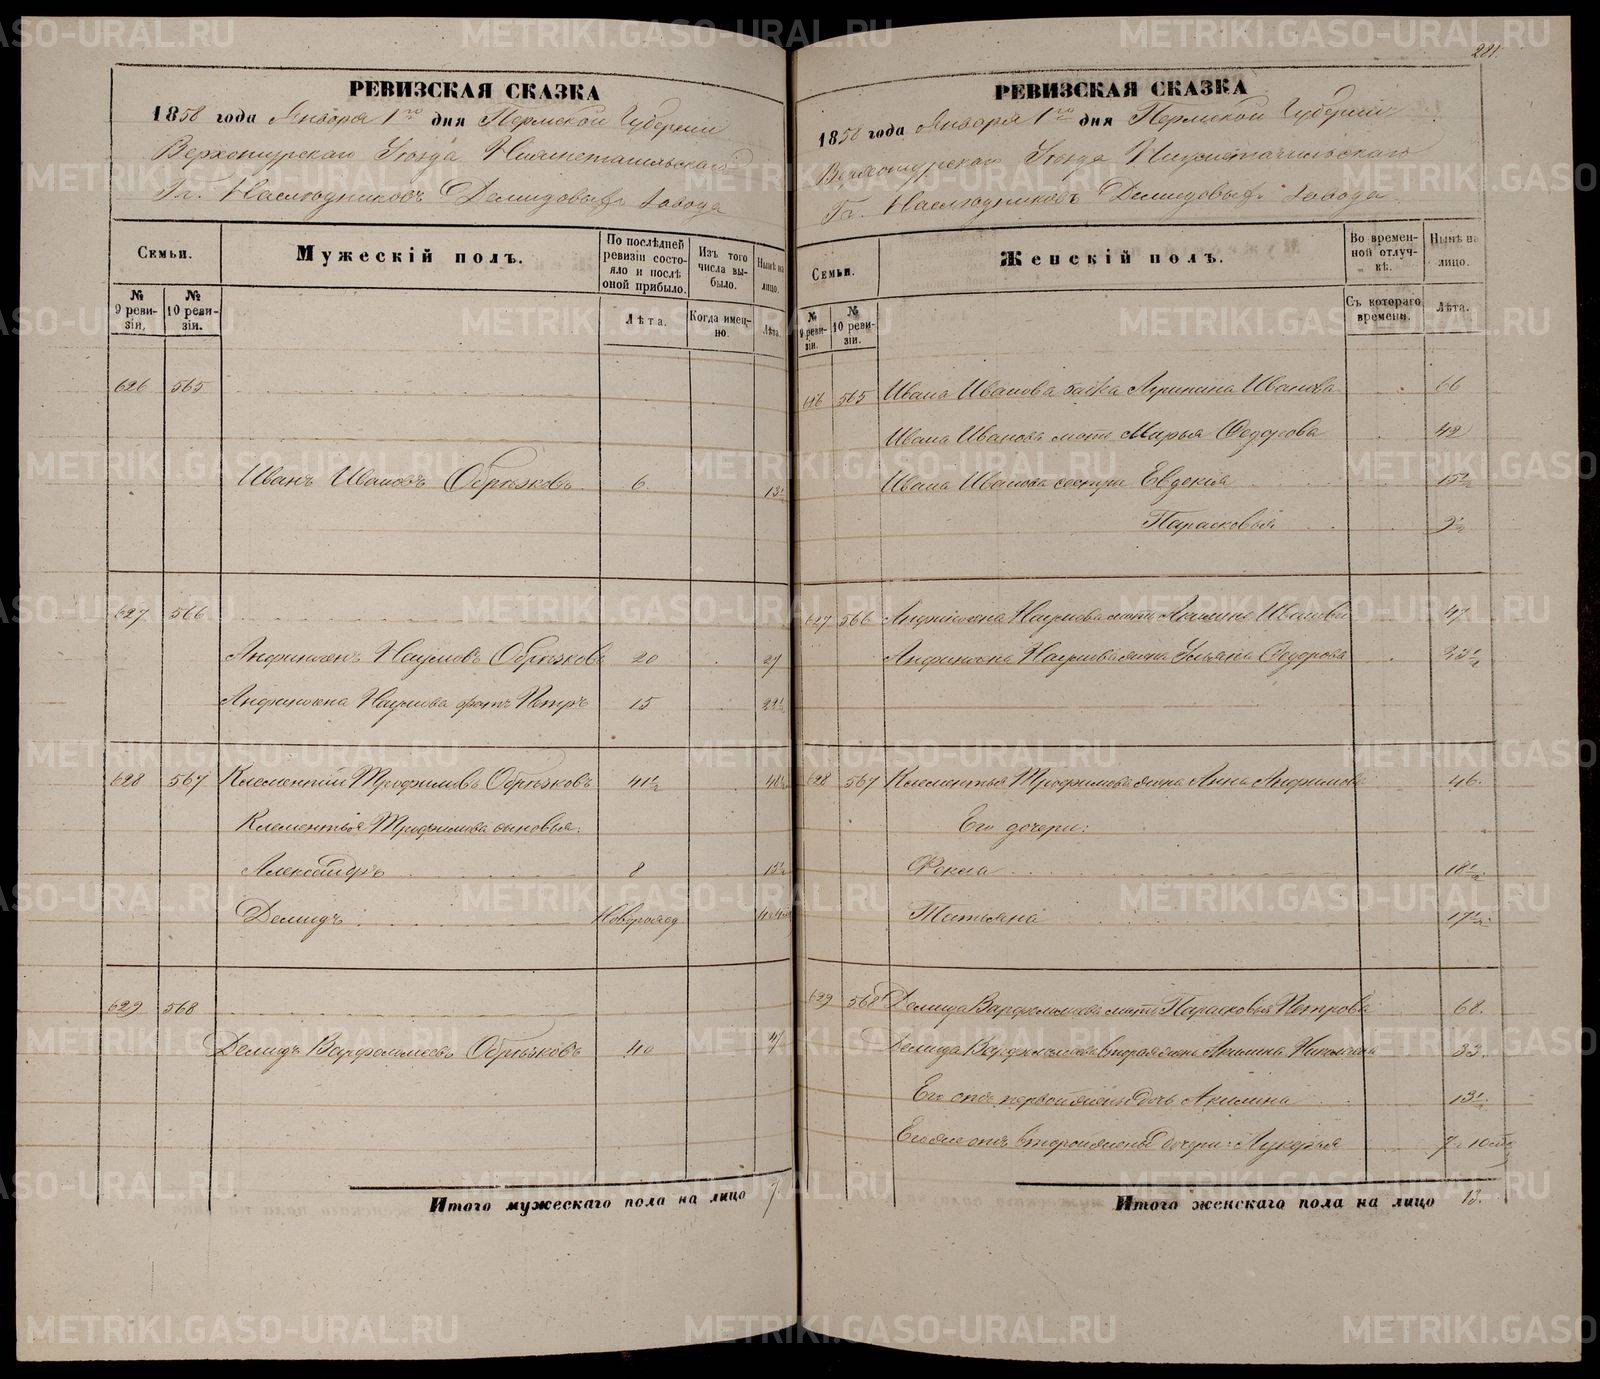 РЕВИЗСКАЯ СКАЗКА
1858 года Января 1го дня Пермской Губернии
Верхотурскаго Уѣзда Нижнетагильскаго
Гг. Наслѣдниковъ Демидовыхъ завода
Семьи.
Мужескій полъ.
По послѣдней ревизіи состояло и послѣ оной прибыло.
Изъ того числа выбыло.
Нынѣ на лицо.
№ 9 ревизіи.
№ 10 ревизіи.
Лѣта.
Когда именно.
Лѣта.
626 565
Иванъ Ивановъ Обрѣзковъ 6 13½
627 566
Анфиногенъ Наумовъ Обрѣзковъ 20 27
Анфиногена Наумова братъ Петръ 15 22½
628 567 Клементій Трофимовъ Обрѣзковъ 41½
Клементья Трофимова сыновья:
Александръ 8 15½
Демидъ Новорожд
629 568
Демидъ Варфоломеевъ Обрѣзковъ 40 47
Итого мужескаго пола на лицо 7.
281.
РЕВИЗСКАЯ СКАЗКА
1858 года Января 1го дня Пермской Губерніи
Верхотурскаго Уѣзда Нижнетагильскаго
Гг. Наслѣдниковъ Демидовыхъ завода
Семьи.
Женскій полъ.
Во временной отлучкѣ.
Нынѣ на лицо.
№ 9 ревизіи.
№ 10 ревизіи.
Съ котораго времени.
Лѣта.
626 565 Ивана Иванова бабка Агрипина Иванова 66
Ивана Иванова мать Марья Федорова 42
Ивана Иванова сестры Евдокія 15½
Парасковья 9½
627 566 Анфиногена Наумова мать Акилина Иванова 47
Анфиногена Наумова жена Ульяна Федорова 23½
628 567 Клементья Трофимова жена Анна Анфимова 46.
Его дочери:
Фекла 18½
Татьяна 17½
629 568 Демида Варфоломеева мать Парасковья Петрова 68.
Демида Варфоломеева вторая жена Акилина 33.
Его отъ первой жены дочь Акилина 13½
Его же отъ второй жены дочери: Лукерья 7. 10 мѣс
Итого женскаго пола на лицо 13.
METRIKI.GASO-URAL.RU